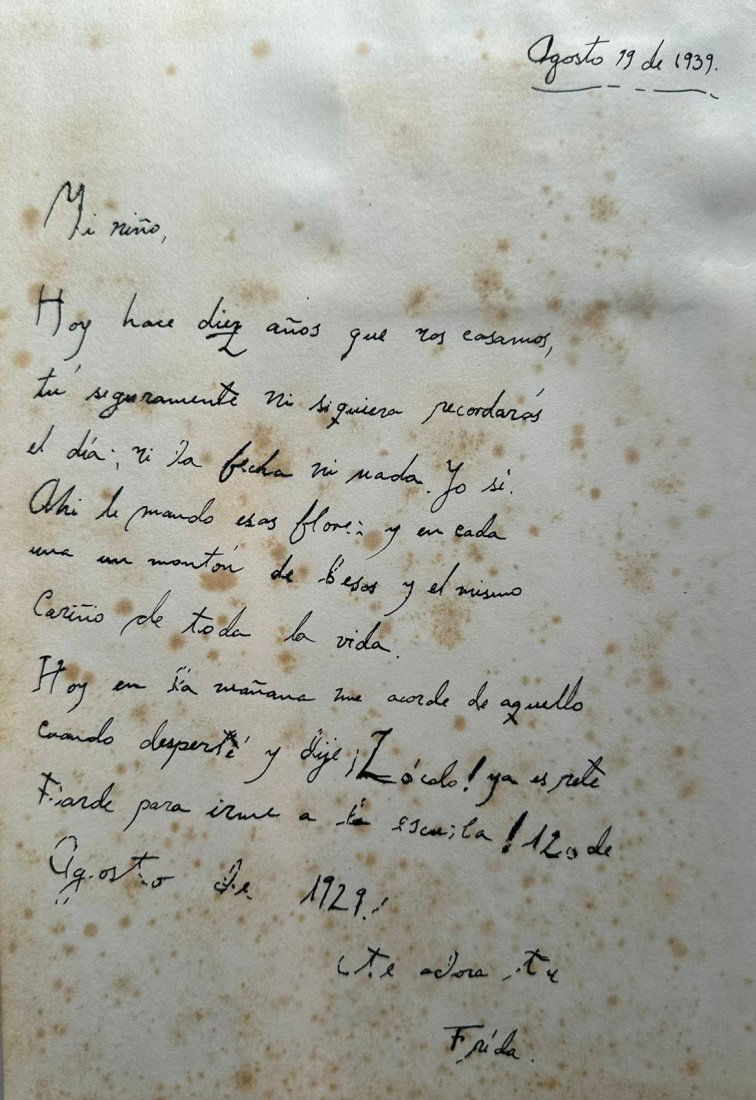 Agosto 19 de 1939.
Mi niño,
Hoy hace diez años que nos casamos,
tú seguramente ni siquiera recordarás
el día, ni la fecha ni nada. Yo si.
Ahi le mando esas flores y en cada
una un montón de besos y el mismo
Cariño de toda la vida.
Hoy en la mañana me acorde de aquello
cuando desperté y dije ¡Zócalo! ya es rete
tarde para irme a la escuela!
Agosto de 1929.
te adora tu
Frida.